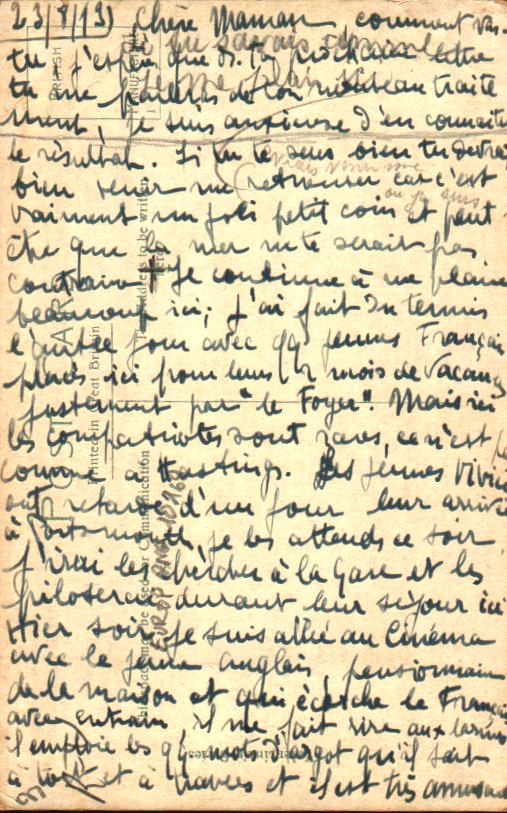 23/8/13) Chère Maman, comment vas-
tu j'espère que ta prochaine lettre
tu me parleras de ton nouveau traite
ment, je suis anxieuse d'en connaître
le résultat. Si tu te sens bien tu devrais
bien venir me retrouver car c'est
vraiment un joli petit coin et peut-
être que la mer ne te serait pas
contraire. Je continue à me plaire
beaucoup ici; j'ai fait du tennis
l'autre jour avec qq jeunes Français
placés ici pour leurs 2 mois de Vacances
justement par "le Foyer". Mais ici
les compatriotes sont rares, ce n'est pas
comme à Hastings. Les jeunes
ont retardé d'un jour leur arrivée
à Portsmouth, je les attends ce soir
j'irai les chercher à la Gare et les
piloterai durant leur séjour ici
Hier soir je suis allée au Cinéma
avec le jeune anglais, pensionnaire
de la maison et qui écorche le Français
avec entrain, il me fait rire aux larmes
il emploie les qq mots d'argot qu'il sait
à tort et à travers et il est très amusant
BRITISH
MANUFACTURE
Printed in Great Britain